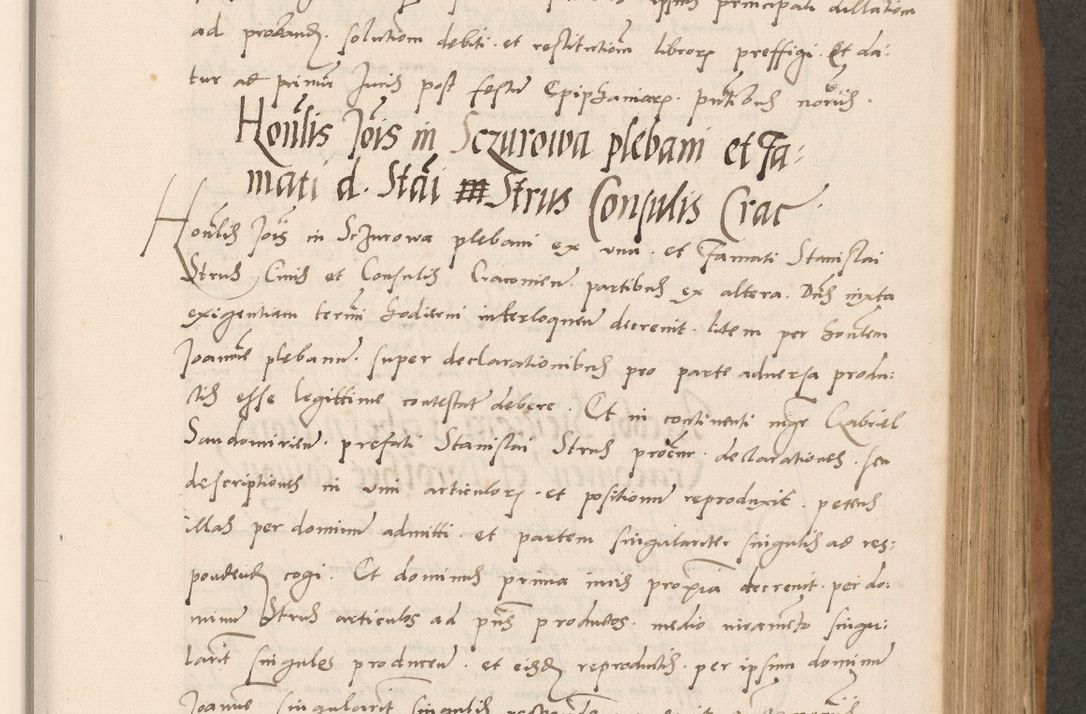 ipsum principali dillationem
ad proband. solutiom debiti. et restitutiom libror preffigi. Et da-
tur ad primu Juris post festu Epiphaniar. pntibus notriis.
Honlis Jois in Sczurowa plebani et Fa-
mati d. Stai Strus Consulis Crac
Honlis Jois in Sczurowa plebani ex una. et Famati Stanislai
Strus Civis et Consulis Cracovien. partibus ex altera. Dns iuxta
exigentiam termi hodierni interloquen decrevit. litem per honlem
Joannē plebanu. super declarationibus pro parte adversa produ-
ctis esse legittime contestat debere. Et in continenti mgr Gabriel
Sandomirien. prefati Stanislai Strus procur. declarationes. seu
descriptiones in vim articulor. et positionu reproduxit. petens
illas per dominu admitti. et partem singulariter singulis ad res-
pondend cogi. Et dominus prima iuris proxia decrevit. per do-
minu Strus articulos ad pns productos. medio iuramēto singu-
larit singulos producen. et eisd reproductis. per ipsum dominu
Joannē singularit singulis